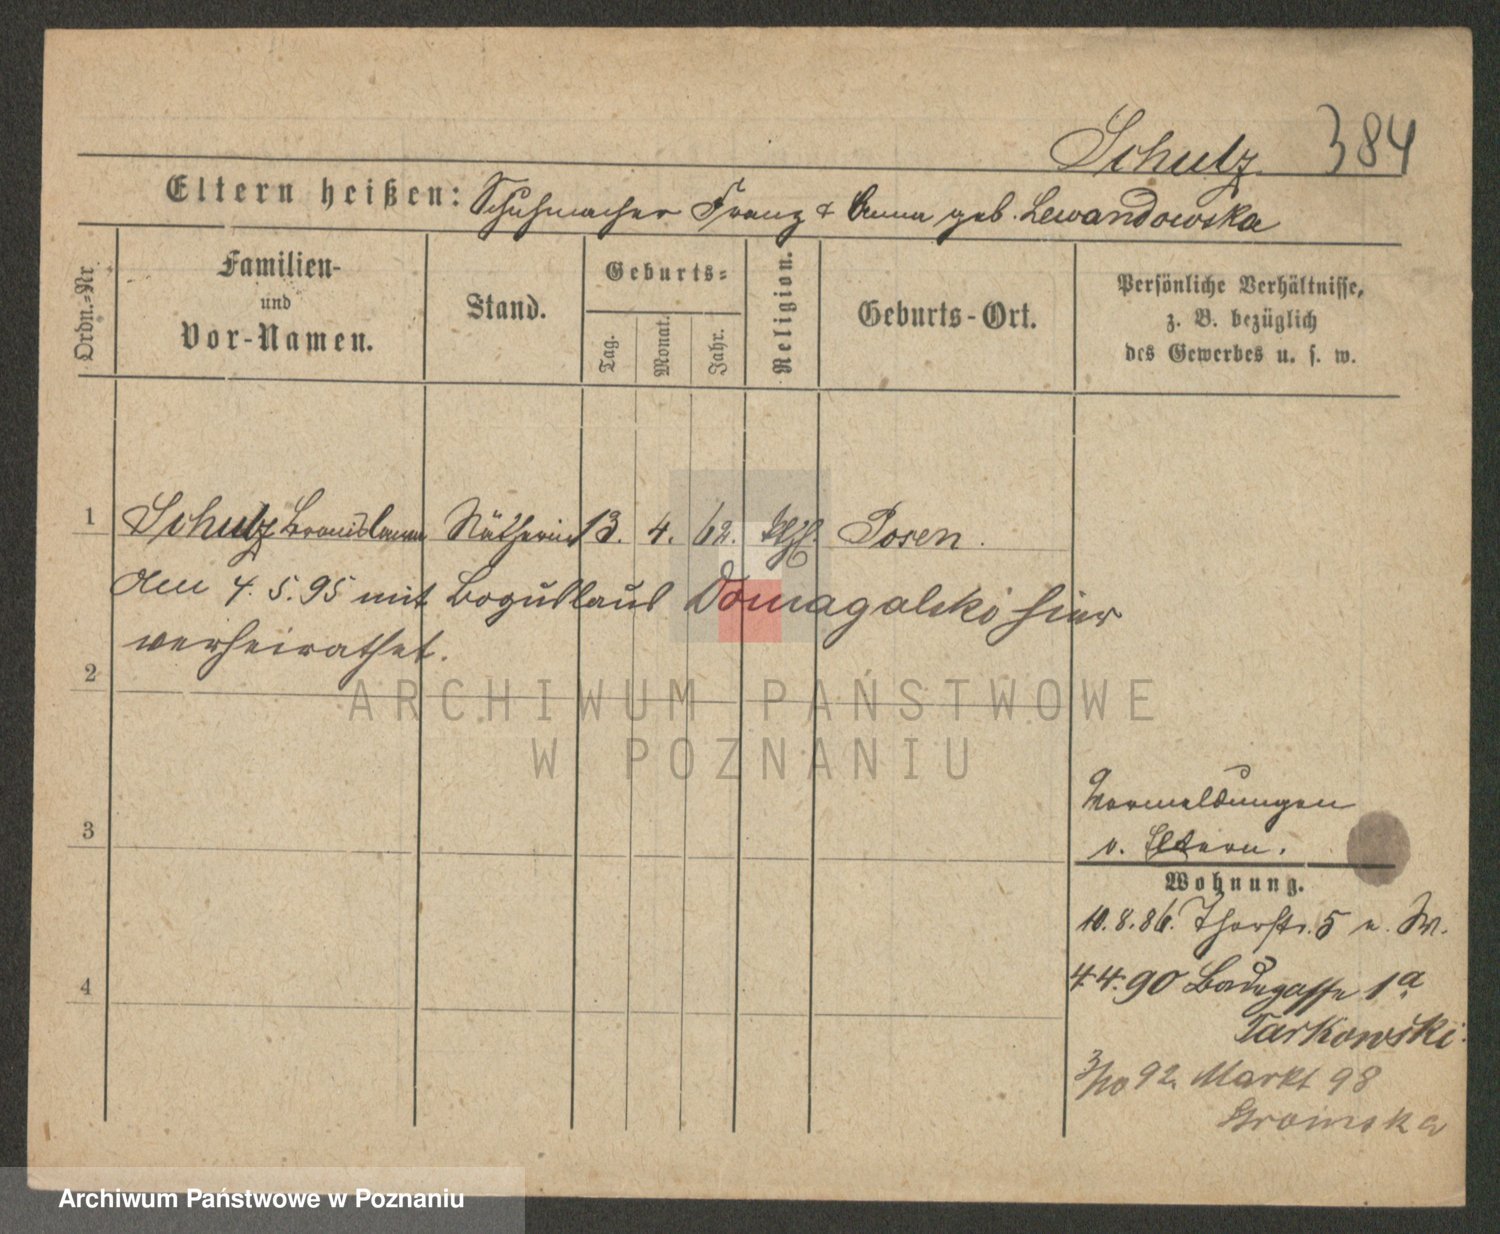 Schulz. 384
Eltern heißen: Schuhmacher Franz & Anna geb. Lewandowska
Ordn.-Nr
Familien-
und
Vor-Namen.
Stand.
Geburts-
Tag.
Monat.
Jahr.
Religion.
Geburts-Ort.
Persönliche Verhältnisse,
z. B. bezüglich
des Gewerbes u. s. w.
1 Schulz Bronislawa Nätherin 13. 4. 62. kth. Posen.
Am 4.5.95 mit Boguslaus Domagalski hier
verheirathet.
2
ARCHIWUM PAŃSTWOWE
W POZNANIU
3
Vermeldungen
v. Eltern.
Wohnung.
10.8.86. Thorstr. 5 n. W.
4
4.4.90 Badegasse 1a
Tarkowski.
3/10 92. Markt 98
Archiwum Państwowe w Poznaniu